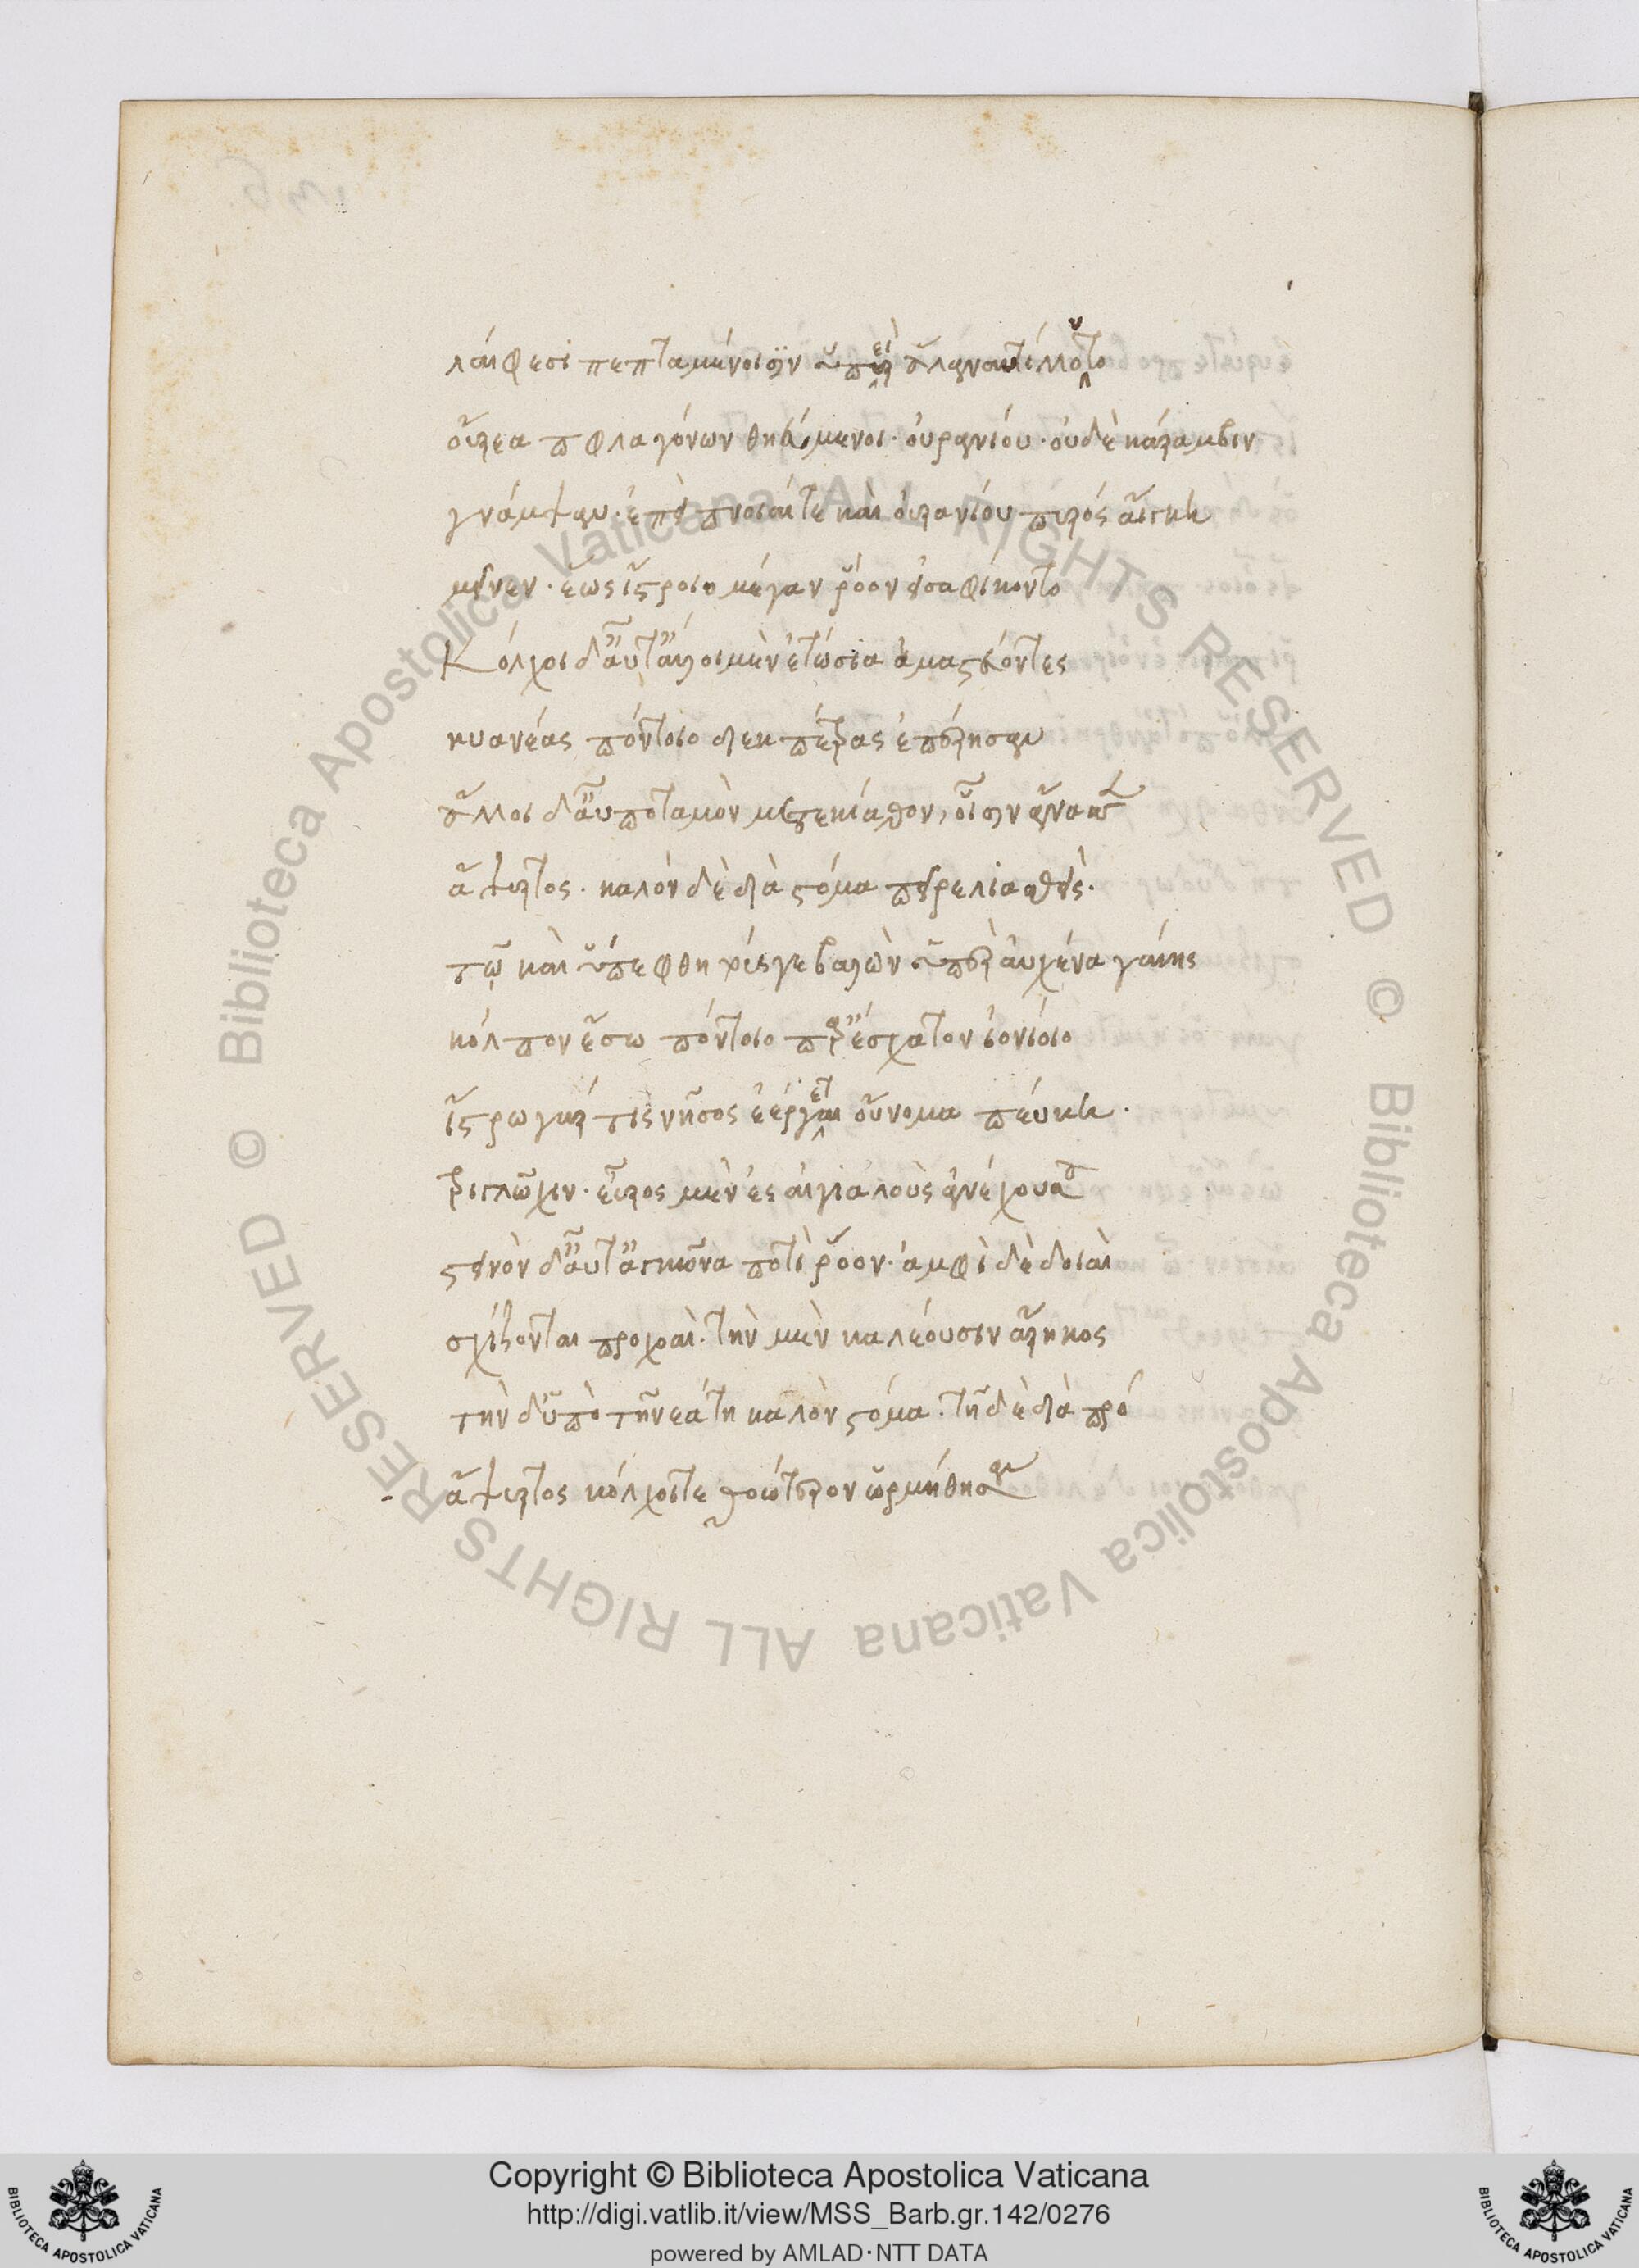 λαίφεσι πεπταμένοισιν ὑπεὶρ ἅλα ναυτίλλοντο
οὔρεα παφλαγόνων θηεύμενοι. οὐρανίου. οὐδὲ κάραμβιν
γνάμψαν. ἐπεὶ πνοιαί τε καὶ οὐρανίου πυρὸς αἴγλη
μεῖνεν. ἕως ἴστροιο μέγαν ῥόον εἰσαφίκοντο
Κόλχοι δ' αὖτ' ἄλλοι μὲν ἐτώσια μαστεύοντες
κυανέας πόντοιο διὲκ πέτρας ἐπέρησαν
ἄλλοι δ' αὖ ποταμὸν μετεκίαθον, οἷσιν ἄνασσεν
ἄψυρτος. καλὸν δὲ διὰ στόμα πεῖρε λιασθείς.
τῷ καὶ ὑπέφθη τούσγε βαλὼν ὑπὲρ αὐχένα γαίης
κόλπον ἔσω πόντοιο πανέσχατον ἰονίοιο
ἴστρῳ γάρ τις νῆσος ἐέργεται οὔνομα πεύκη.
τριγλώχιν. εὖρος μὲν ἐς αἰγιαλοὺς ἀνέχουσα
στεινὸν δ' αὖτ' ἀγκῶνα ποτὶ ῥόον. ἀμφὶ δὲ δοιαὶ
σχίζονται προχοαί. τὴν μὲν καλέουσιν ἄρηκος
τὴν δ' ὑπὸ τῇ νεάτῃ καλὸν στόμα. τῇ δὲ διὰ πρό
ἄψυρτος κόλχοι τε θοώτερον ὡρμήθησαν
Copyright © Biblioteca Apostolica Vaticana
http://digi.vatlib.it/view/MSS_Barb.gr.142/0276
powered by AMLAD·NTT DATA